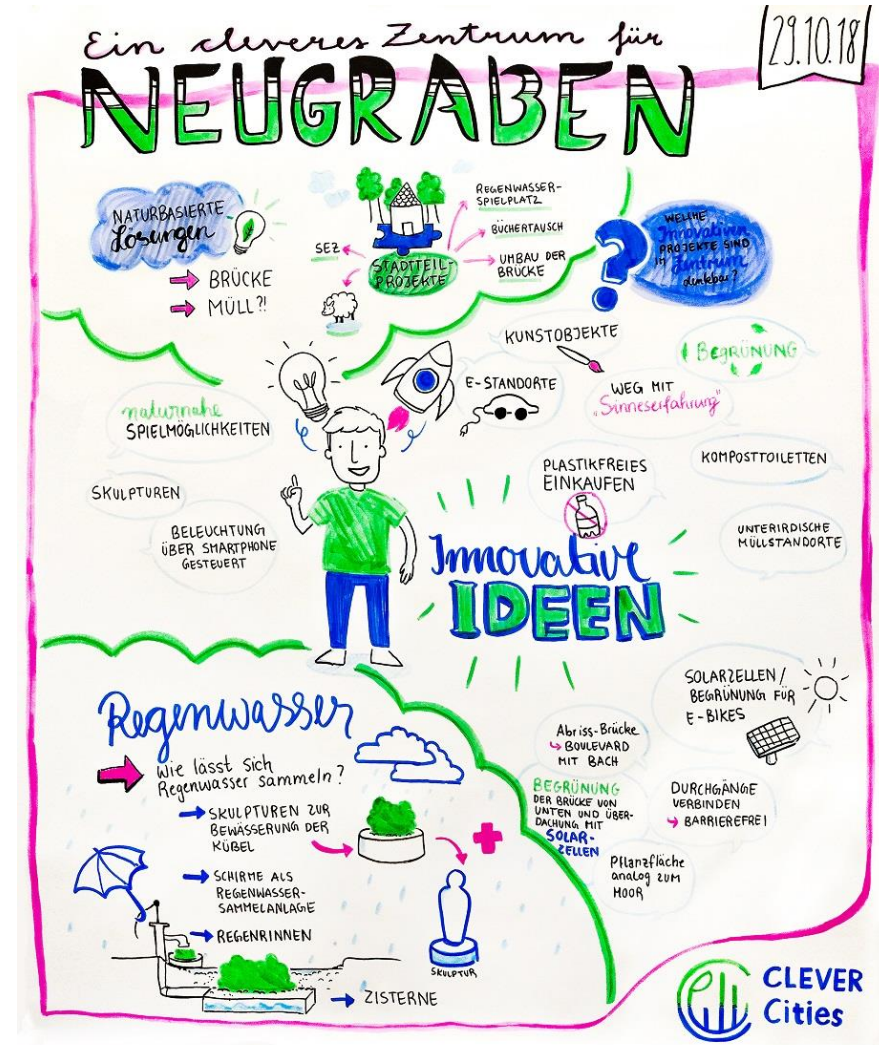 Ein cleveres Zentrum für
NEUGRABEN
29.10.18
NATURBASIERTE
Lösungen
BRÜCKE
MÜLL?!
SEZ
STADTTEIL-
PROJEKTE
REGENWASSER-
SPIELPLATZ
BÜCHERTAUSCH
UMBAU DER
BRÜCKE
?
WELCHE
Innovativen
PROJEKTE SIND
IM Zentrum
denkbar?
KUNSTOBJEKTE
BEGRÜNUNG
E-STANDORTE
WEG MIT
"Sinneserfahrung"
naturnahe
SPIELMÖGLICHKEITEN
SKULPTUREN
BELEUCHTUNG
ÜBER SMARTPHONE
GESTEUERT
PLASTIKFREIES
EINKAUFEN
KOMPOSTTOILETTEN
UNTERIRDISCHE
MÜLLSTANDORTE
Innovative
IDEEN
SOLARZELLEN/
BEGRÜNUNG FÜR
E-BIKES
Abriss-Brücke
BOULEVARD
MIT BACH
BEGRÜNUNG
DER BRÜCKE VON
UNTEN UND ÜBER-
DACHUNG MIT
SOLAR-
ZELLEN
DURCHGÄNGE
VERBINDEN
BARRIEREFREI
Pflanzfläche
analog zum
MOOR
Regenwasser
Wie lässt sich
Regenwasser sammeln?
SKULPTUREN ZUR
BEWÄSSERUNG DER
KÜBEL
SCHIRME ALS
REGENWASSER-
SAMMELANLAGE
REGENRINNEN
ZISTERNE
SKULPTUR
CLEVER
Cities